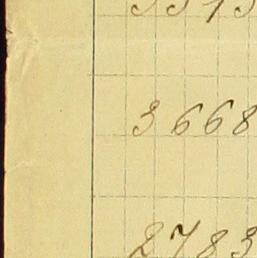 3668
2783